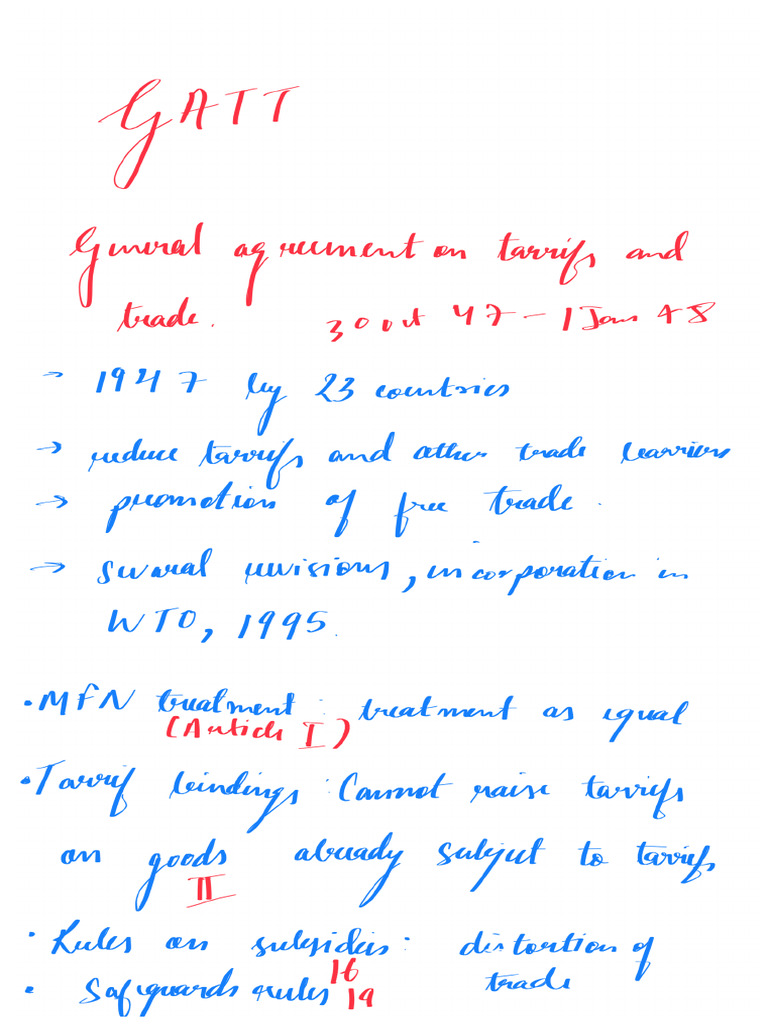 GATT
General agreement on tarrifs and
trade. 30 oct 47 - 1 Jan 48
→ 1947 by 23 countries
→ reduce tarrifs and other trade barriers
→ promotion of free trade.
→ several revisions, incorporation in
WTO, 1995.
• MFN treatment : treatment as equal
(Article I)
• Tarrif bindings : Cannot raise tarrifs
on goods already subject to tarrifs
II
• Rules on subsidies : distortion of
trade
16
• Safguards rules 19